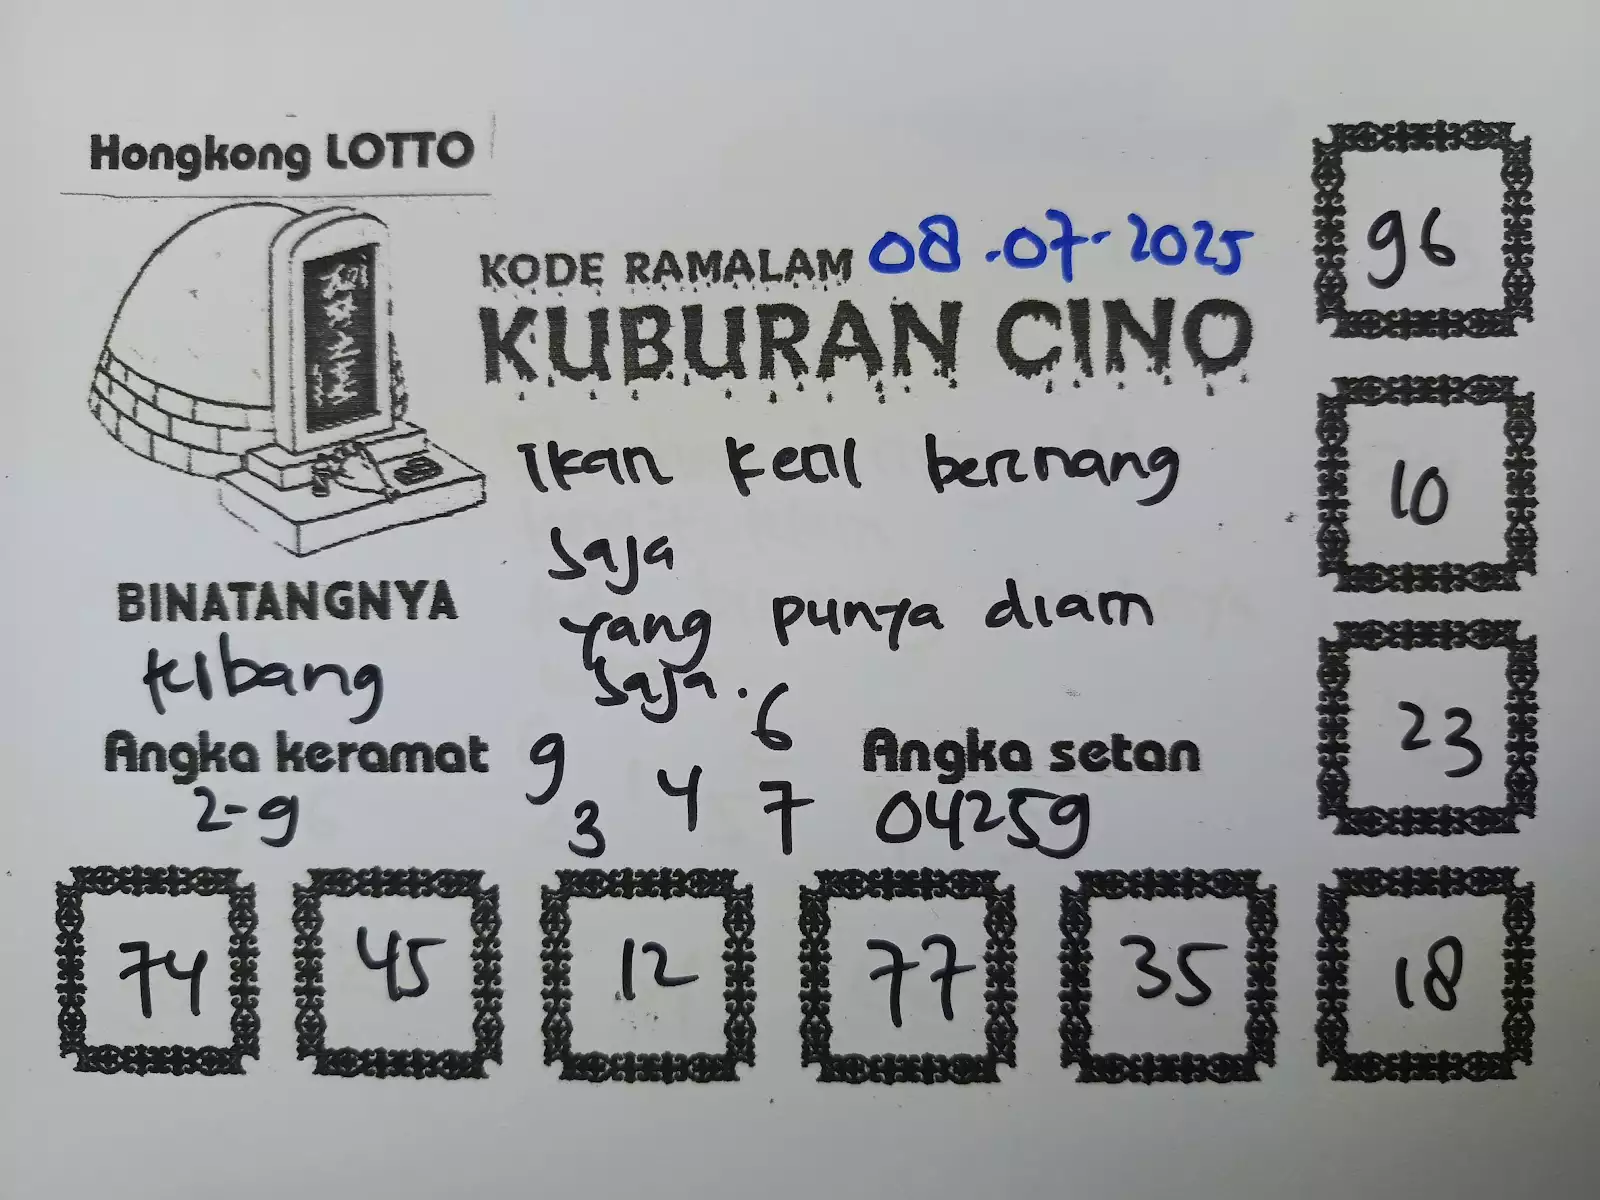 Hongkong LOTTO
KODE RAMALAM 08-07-2025
KUBURAN CINO
Ikan kecil berenang
saja
yang punya diam
saja.
BINATANGNYA
kibang
Angka keramat
2-9
9 6
3 4 7
Angka setan
04259
96
10
23
74 45 12 77 35 18